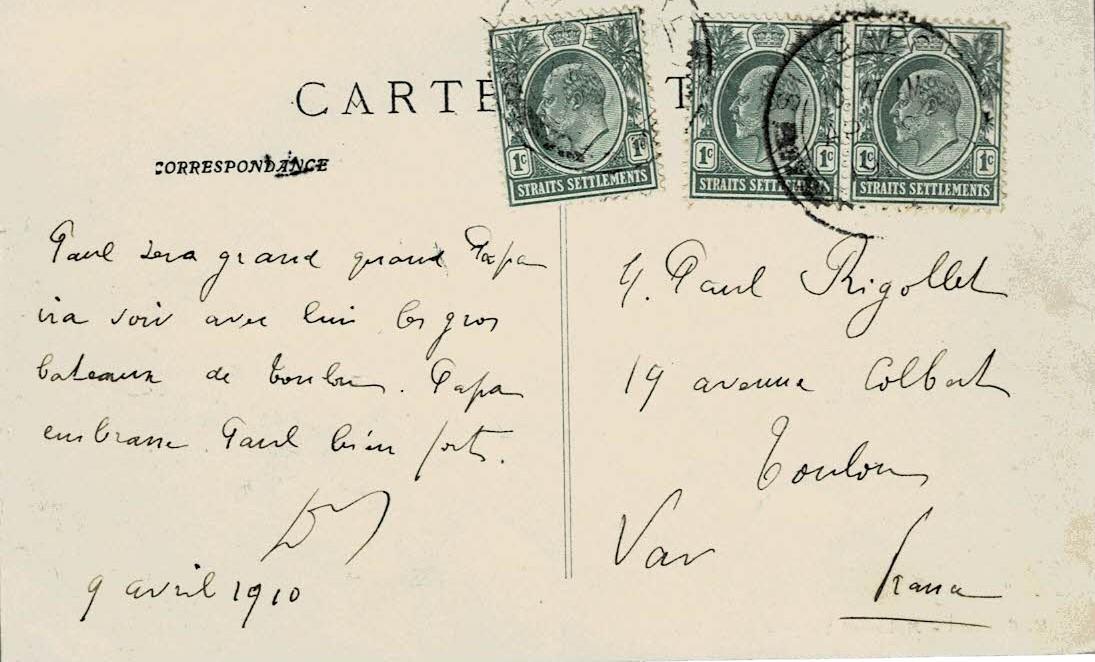 CARTE
CORRESPONDANCE
1c 1c
STRAITS SETTLEMENTS
1c 1c
STRAITS SETTLEMENTS
1c 1c
STRAITS SETTLEMENTS
Paul sera grand quand Papa
ira voir avec lui les gros
bateaux de Toulon. Papa
embrasse Paul bien fort.
9 avril 1910
Paul Rigollet
19 avenue Colbert
Toulon
Var
France